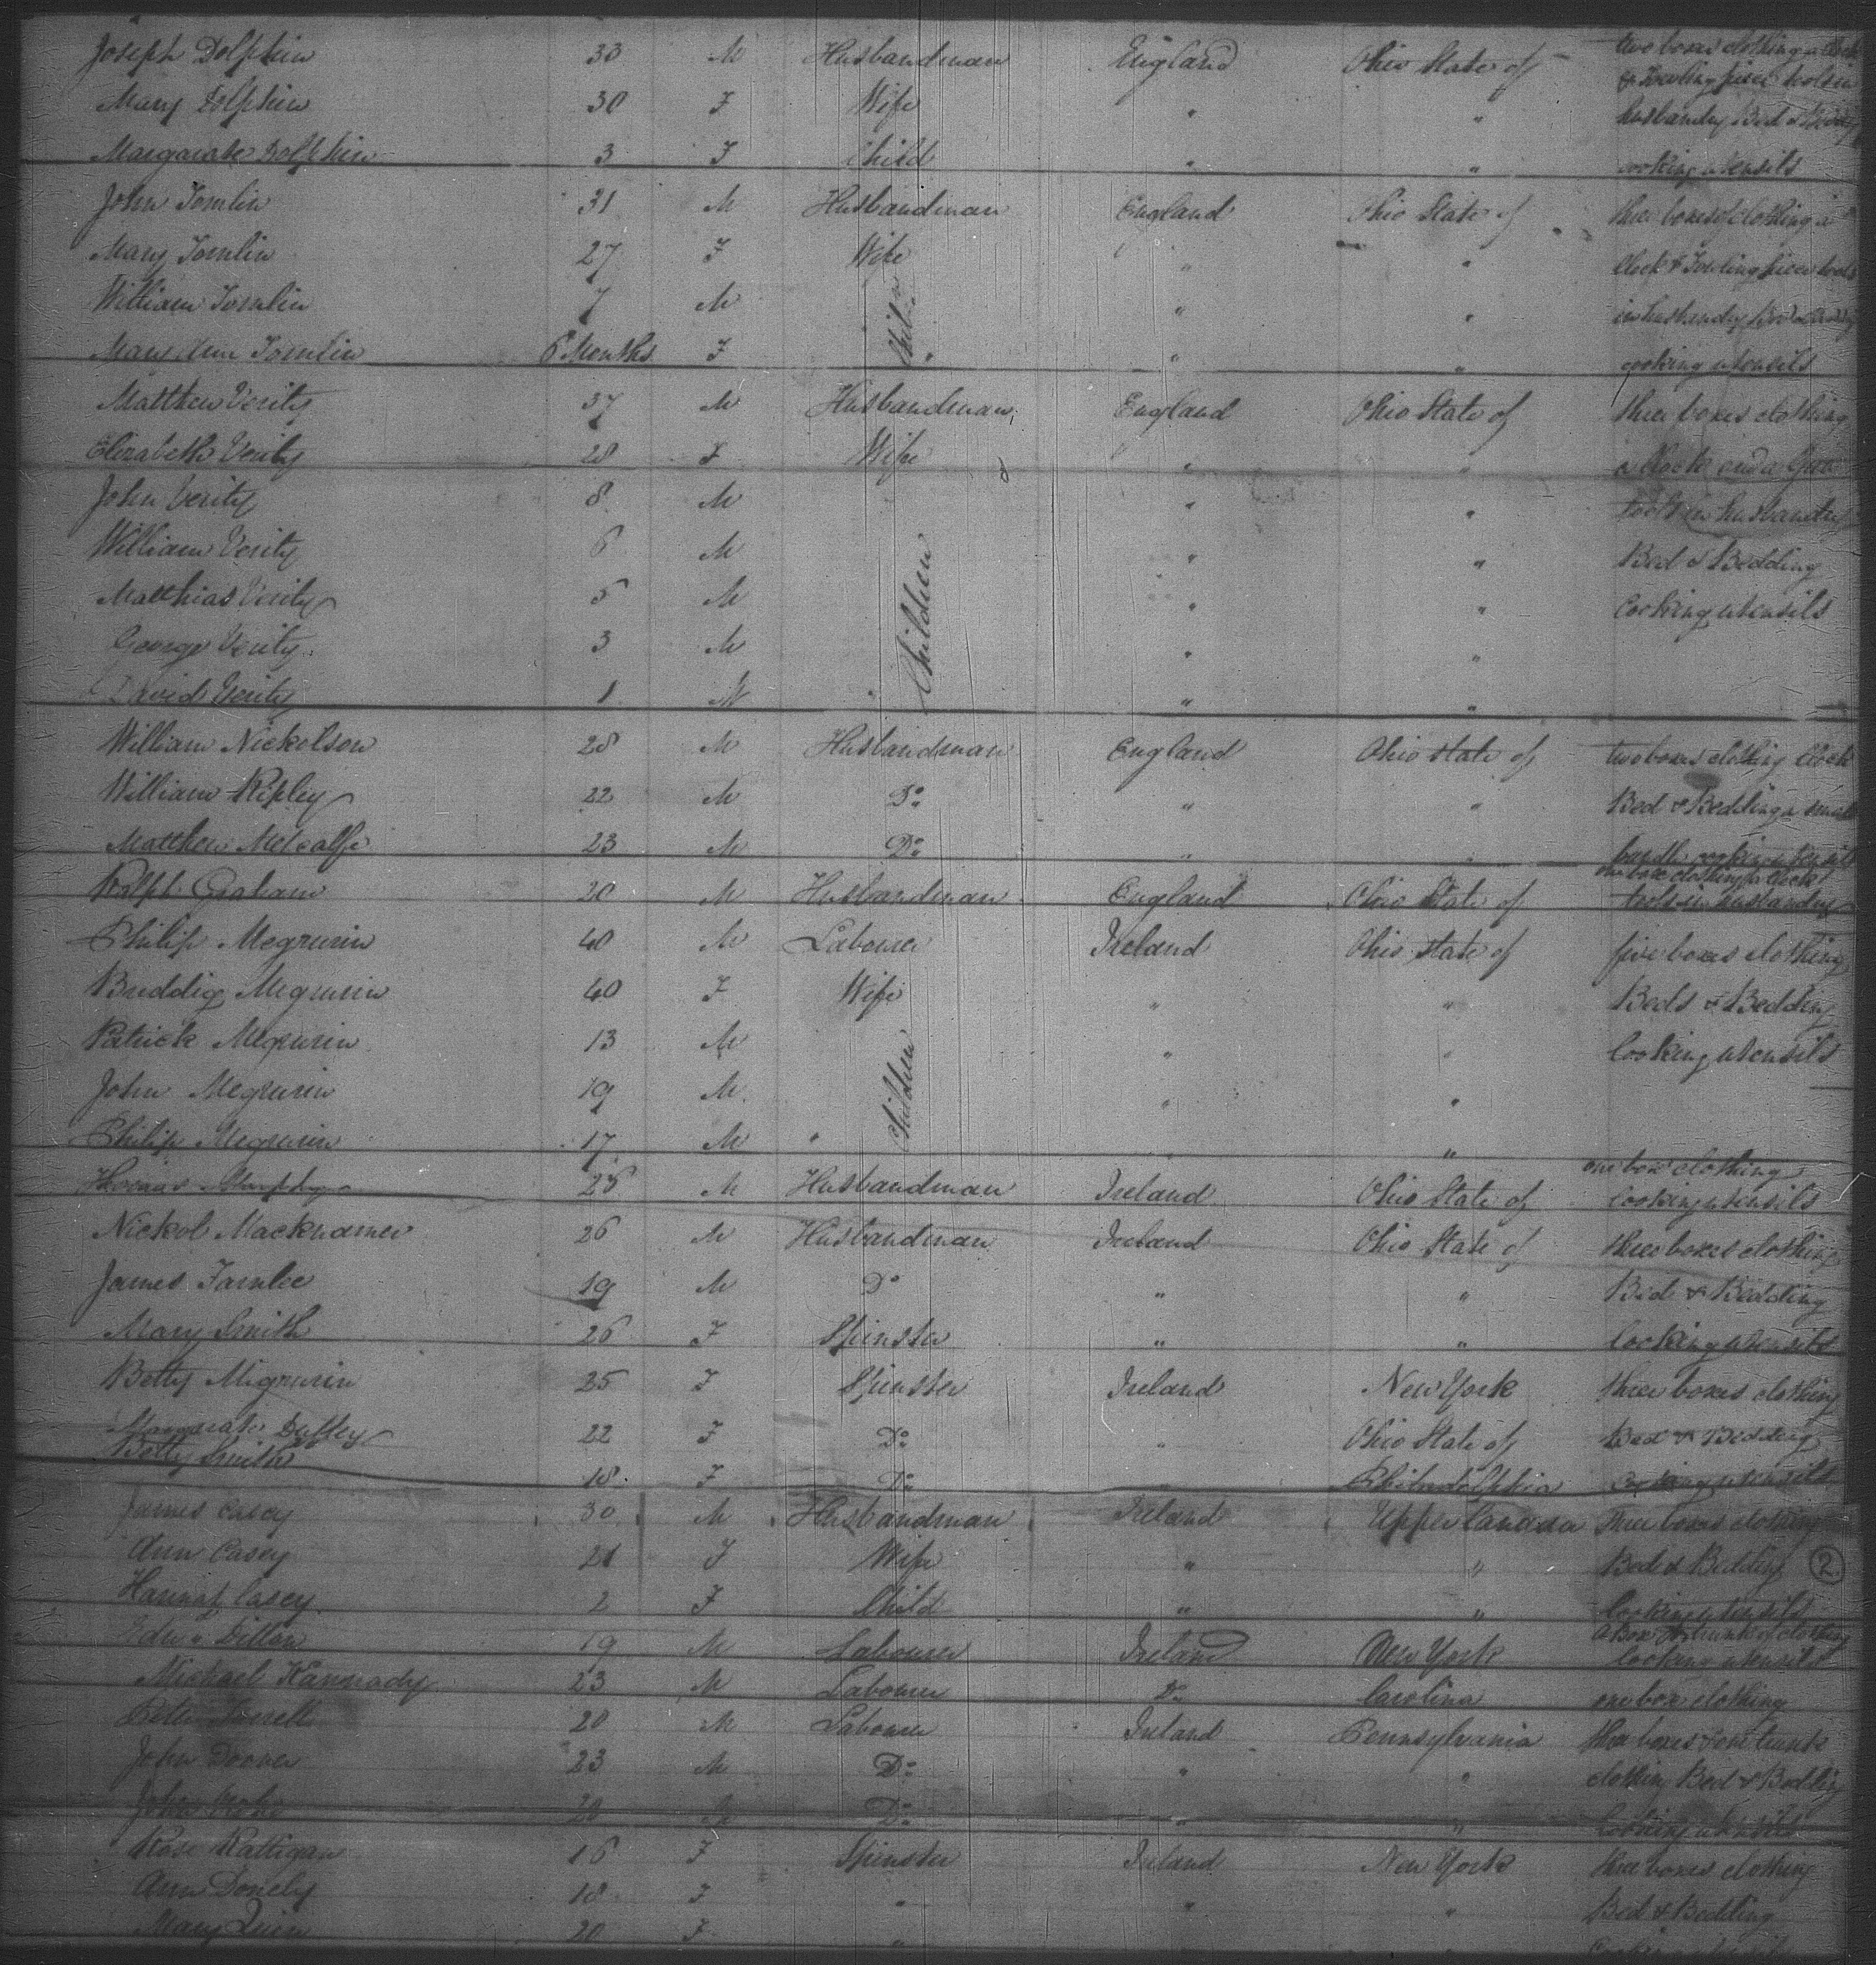 Joseph Dolphin 33 M Husbandman England Ohio State of two boxes clothing a Clock
Mary Dolphin 30 F Wife " " & Fowling piece tools in husbandry Bed &
Margarate Dolphin 3 F Child " " cooking utensils
John Tomlin 31 M Husbandman England Ohio State of three boxes of clothing a
Mary Tomlin 27 F Wife " " Clock & Fowling piece tools
William Tomlin 7 M " " in husbandry Bed &
Mary Ann Tomlin 6 Months F " " cooking utensils
Matthew Verity 37 M Husbandman England Ohio State of three boxes clothing
Elizabeth Verity 28 F Wife " " a Clock and a Gun
John Verity 8 M " " tools in husbandry
William Verity 6 M Children " " Bed & Bedding
Matthias Verity 5 M " " Cooking utensils
George Verity 3 M " "
David Verity 1 M " "
William Nickolson 28 M Husbandman England Ohio State of two boxes clothing Clock
William Ripley 22 M Do " " Bed & Bedding a small
Matthew Metcalfe 23 M Do " " bundle cooking utensils
one box clothing a Clock
Ralph Graham 20 M Husbandman England Ohio State of tools in husbandry
Philip Megrurin 40 M Labourer Ireland Ohio State of five boxes clothing
Briddig Megrurin 40 F Wife " " Beds & Bedding
Patrick Megrurin 13 M Children " " Cooking utensils
John Megrurin 19 M " "
Philip Megrurin 17 M " "
one box clothing
Thomas Murphy 25 M Husbandman Ireland Ohio State of Cooking utensils
Nickol Macknamer 26 M Husbandman Ireland Ohio State of three boxes clothing
James Tamlee 19 M Do " " Bed & Bedding
Mary Smith 26 F Spinster " " Cooking utensils
Betty Migrurin 25 F Spinster Ireland New York three boxes clothing
Margarate Duffey 22 F Do " Ohio State of Bed & Bedding
Betty Smith 18 F Do " Philadelphia Cooking utensils
James Casey 30 M Husbandman Ireland Upper Canada Three boxes clothing
Ann Casey 21 F Wife " " Bed & Bedding 2
Hannah Casey 2 F Child " " Cooking utensils
a Box & trunk of clothing
Dillon 19 M Labourer Ireland New York Cooking utensils
Michael Kannady 23 M Labourer Do Carolina one box clothing
Peter 20 M Labourer Ireland Pennsylvania three boxes & one trunk
John 23 M Do " " clothing Bed & Bedding
John 20 M Do " " Cooking utensils
Rose Rattigan 16 F Spinster Ireland New York three boxes clothing
Ann Donely 18 F " " " Bed & Bedding
Mary Quin 20 F "